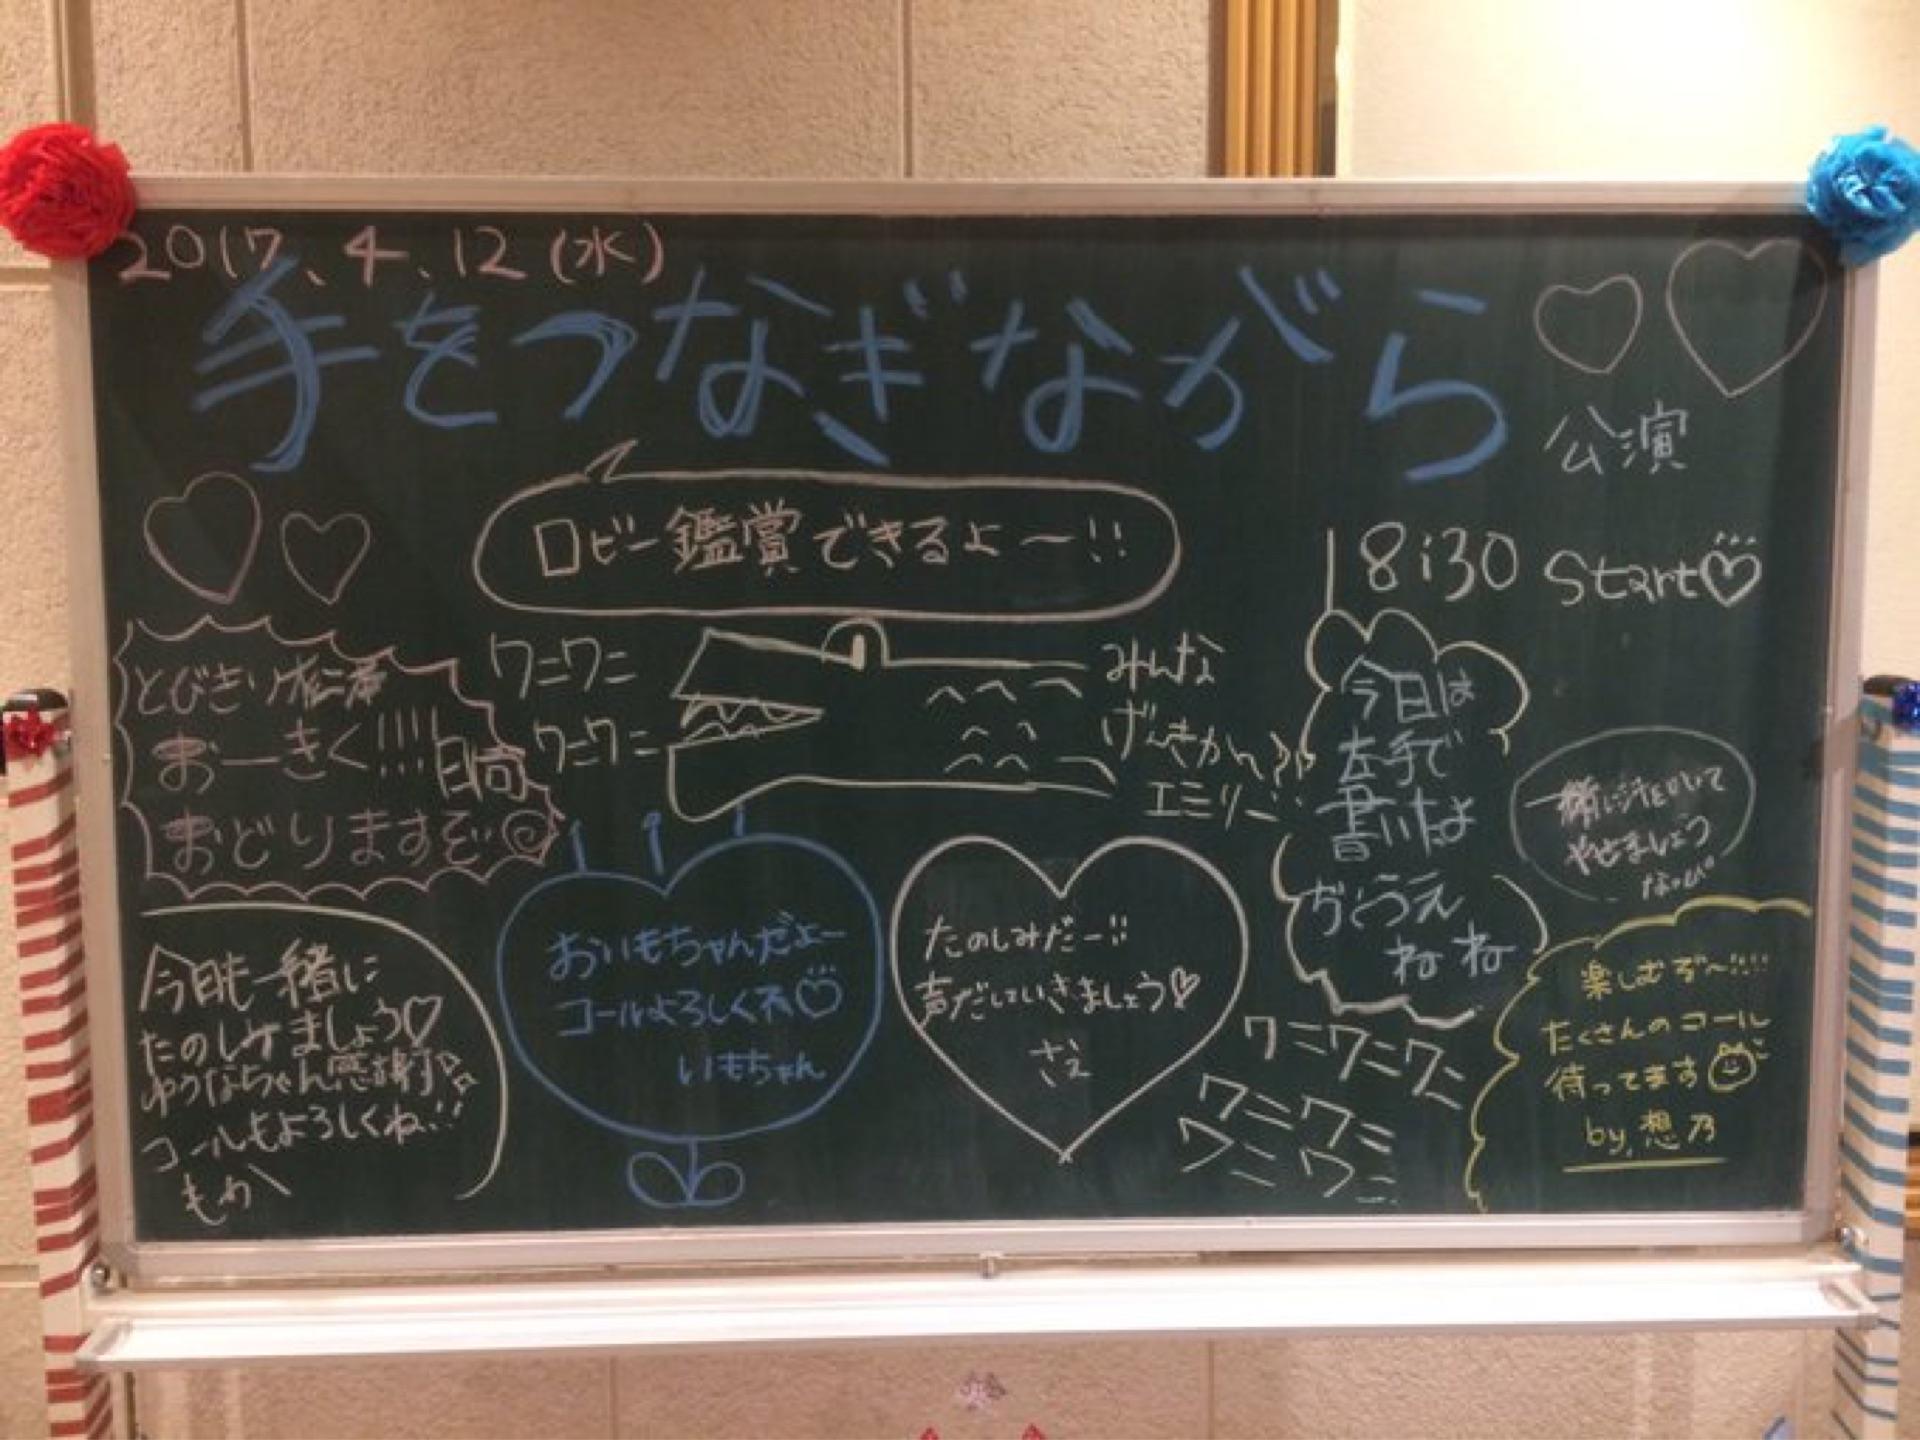 2017.4.12(水)
手をつなぎながら
公演
ロビー鑑賞できるよー!!
18:30 Start
とびきり
おーきく!!!!
日向
おどりますぞ
ワニワニ
ワニワニ
みんな
げんきかい??
エミリー
今日は
左手で
書いたよ
ぢとうえ
ねね
一緒に汗をかいて
やせましょう
なっぴ
今日も一緒に
たのしみましょう♡
ゆうなちゃん感謝
コールもよろしくね!!
もゎ
おいもちゃんだよー
コールよろしくネ
いもちゃん
たのしみだー!!
声だしていきましょう♡
さえ
ワニワニワニ
ワニワニ
ワニワニ
楽しむぞ〜!!!!
たくさんのコール
待ってます
by,想乃